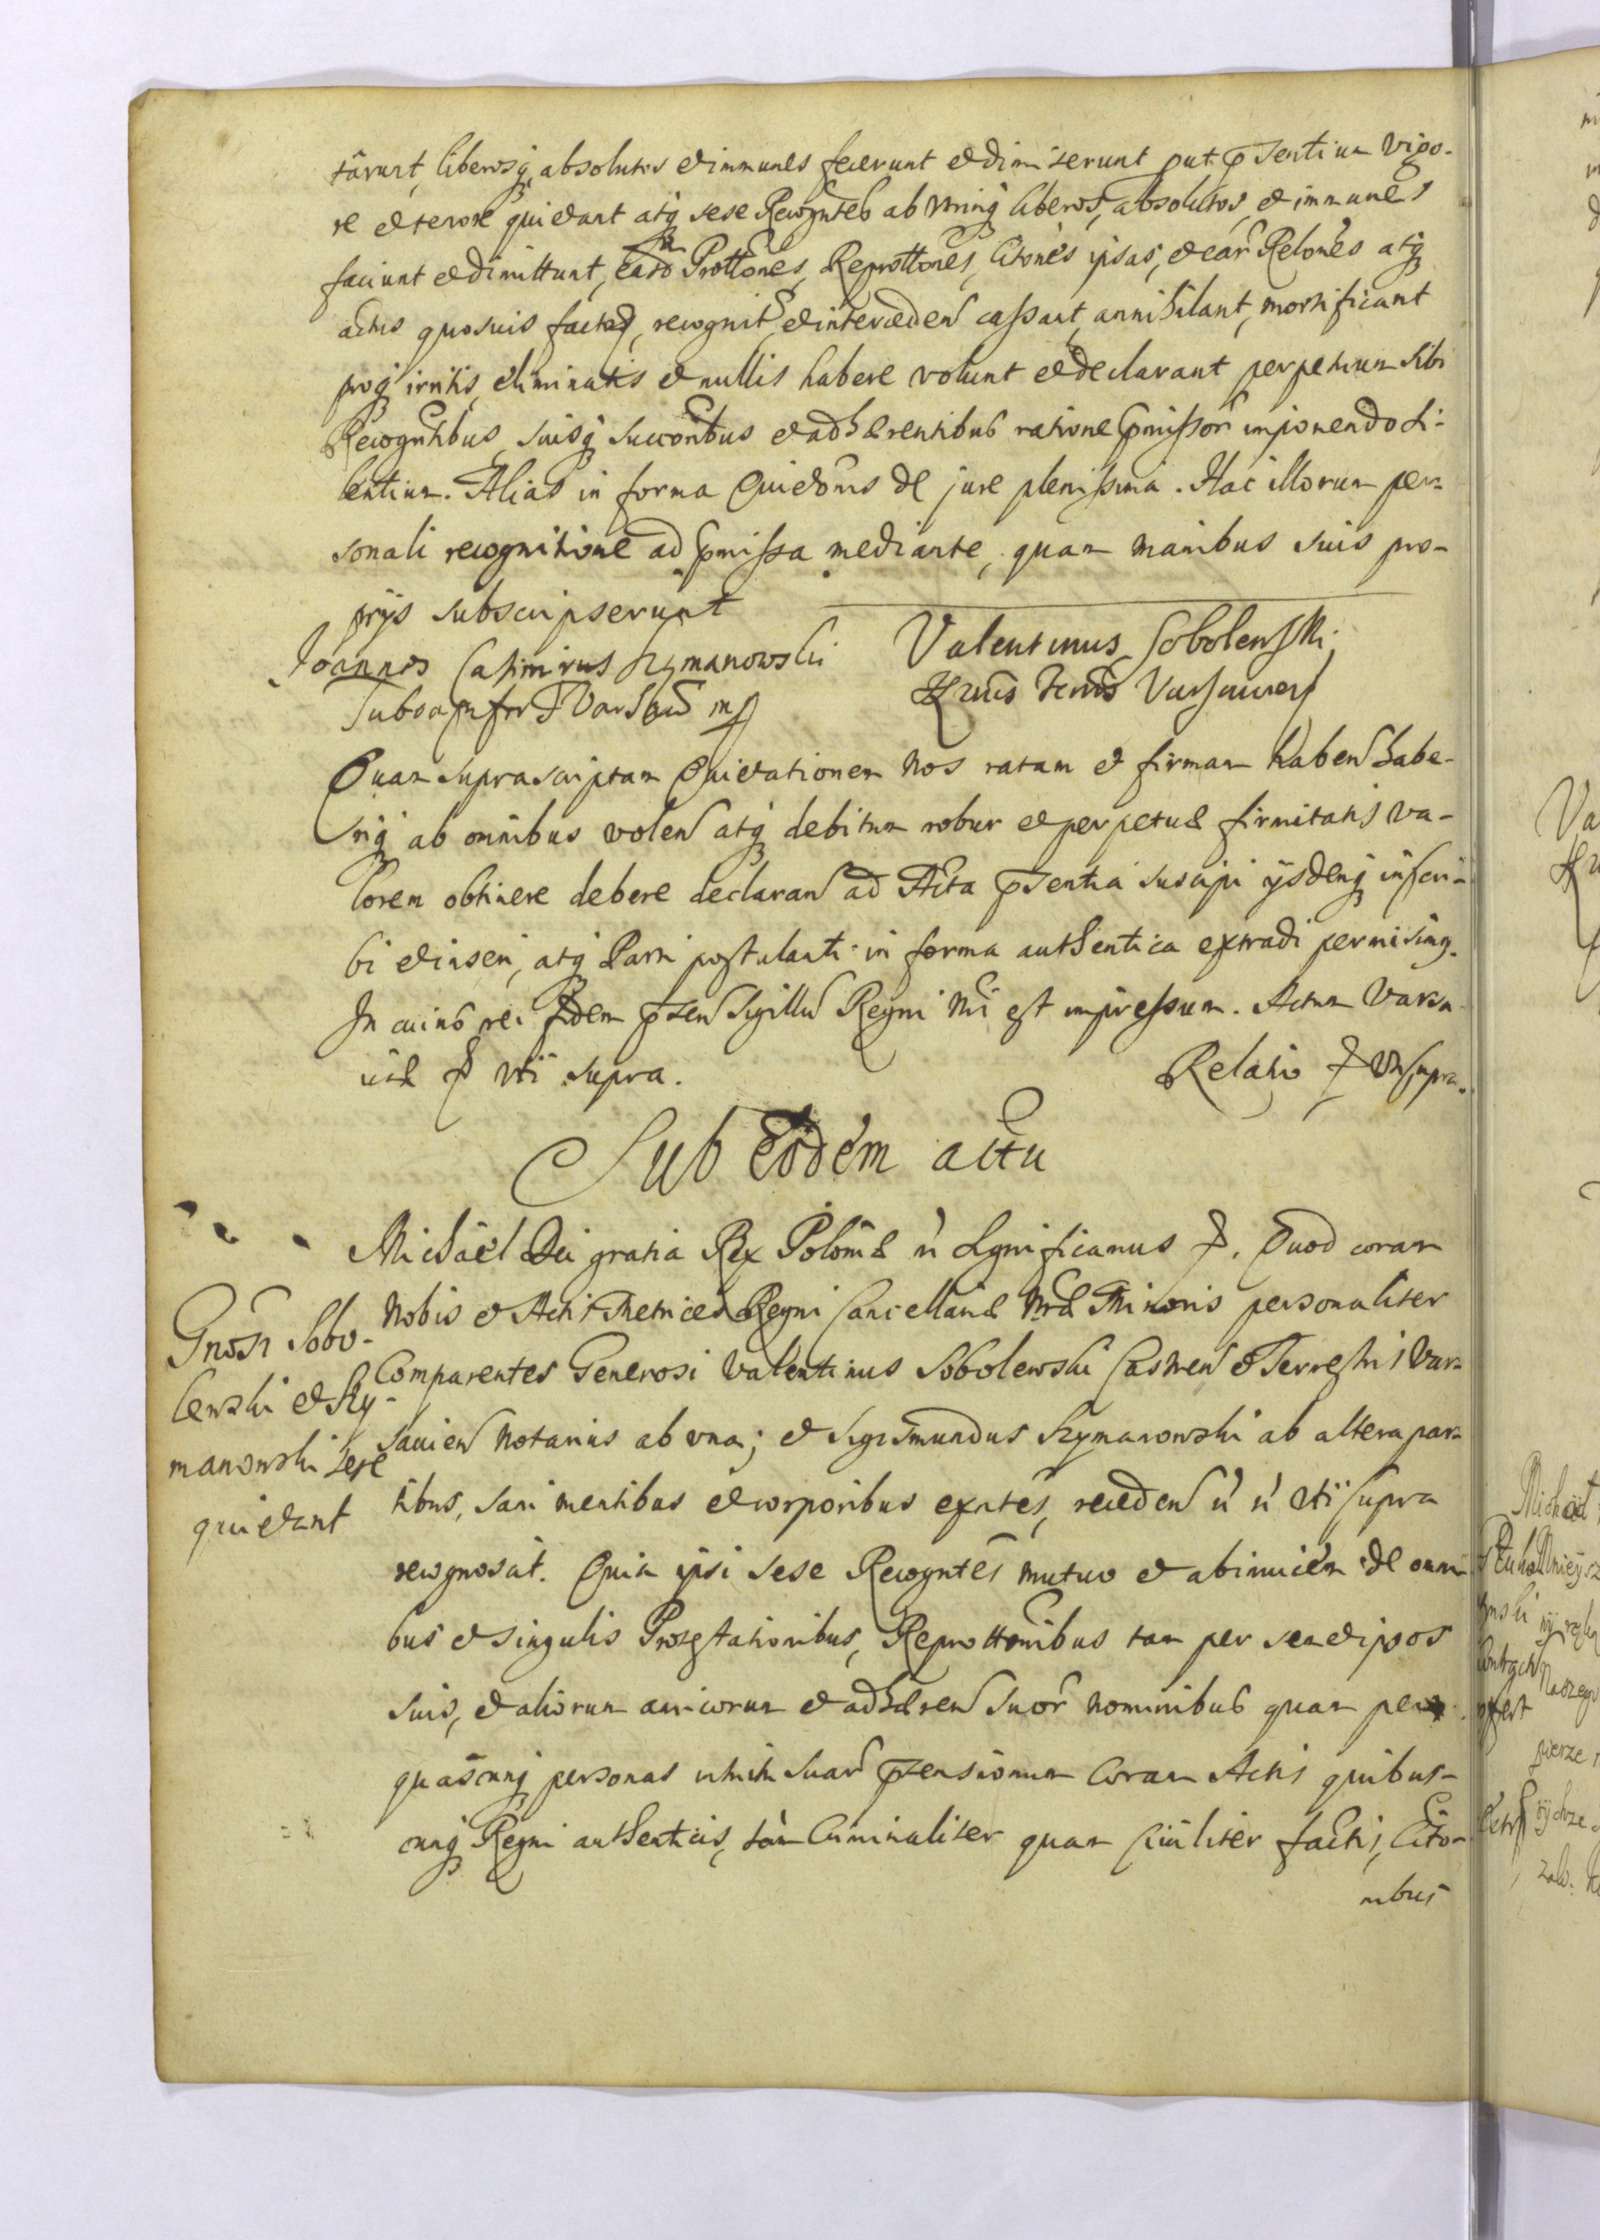 târunt, liberosq, absolutos et immunes fecerunt et dimiserunt put pñsentium vigo-
re et tenore quietant atq sese Recogntes ab utrinq liberos, absolutos, et immunes
faciunt et dimittunt, easd Prottones, Reprottones, Citones ipsas, et ear Relones atq
actus quosuis factos, recognit et interceden cassant, annihilant, mortificant
proq irritis, eliminatis et nullis habere volunt et declarant perpetuum sibi
Recogntibus, suisq succoribus et adhærentibus ratione pmissor imponendo si-
lentium. Alias in forma Quietonis de jure plenissima. Hac illorum per-
sonali recognitione ad pmissa mediante, quam manibus suis pro-
prijs subscripserunt
Joannes Casimirus Szymanowski
Valentinus Sobolewski
Subdapifer Varsau mp
Quam suprascriptam Quietationem Nos ratam et firmam haben habe-
riq ab omnibus volen atq debitum robur et perpetuæ firmitatis va-
lorem obtinere debere declaran ad Acta pñsentia suscipi ijsdemq inscri-
bi et inseri, atq Parti postulanti in forma authentica extradi permisimq.
In cuius rei fidem pñsen Sigillū Regni Nri est impressum. Actum Varsa-
uiæ uti supra.
Relatio ut supra.
Sub Eodem actu
Michaël Dei gratia Rex Poloniæ Significamus. Quod coram
Nobis et Actis Metrices Regni Cancellariæ Nræ Minoris personaliter
Gnosi Sobo-
lewski et Szy-
manowski sese
quietant
Comparentes Generosi Valentinus Sobolewski Castren et Terrestris Var-
sauien Notarius ab una; et Sigismundus Szymanowski ab altera par-
tibus, sani mentibus et corporibus exntes, receden uti supra
recgnosât. Quia ipsi sese Recogntes mutuo et abinuicem de omni-
bus et singulis Protestationibus, Reprottonibus tam per semetipsos
suis, et aliorum amicorum et adhæren suor nominibus quam per
quascunq personas pñsensionum coram Actis quibus-
cunq Regni authenticis, tam Criminaliter quam Ciuiliter factis, Cito-
nibus